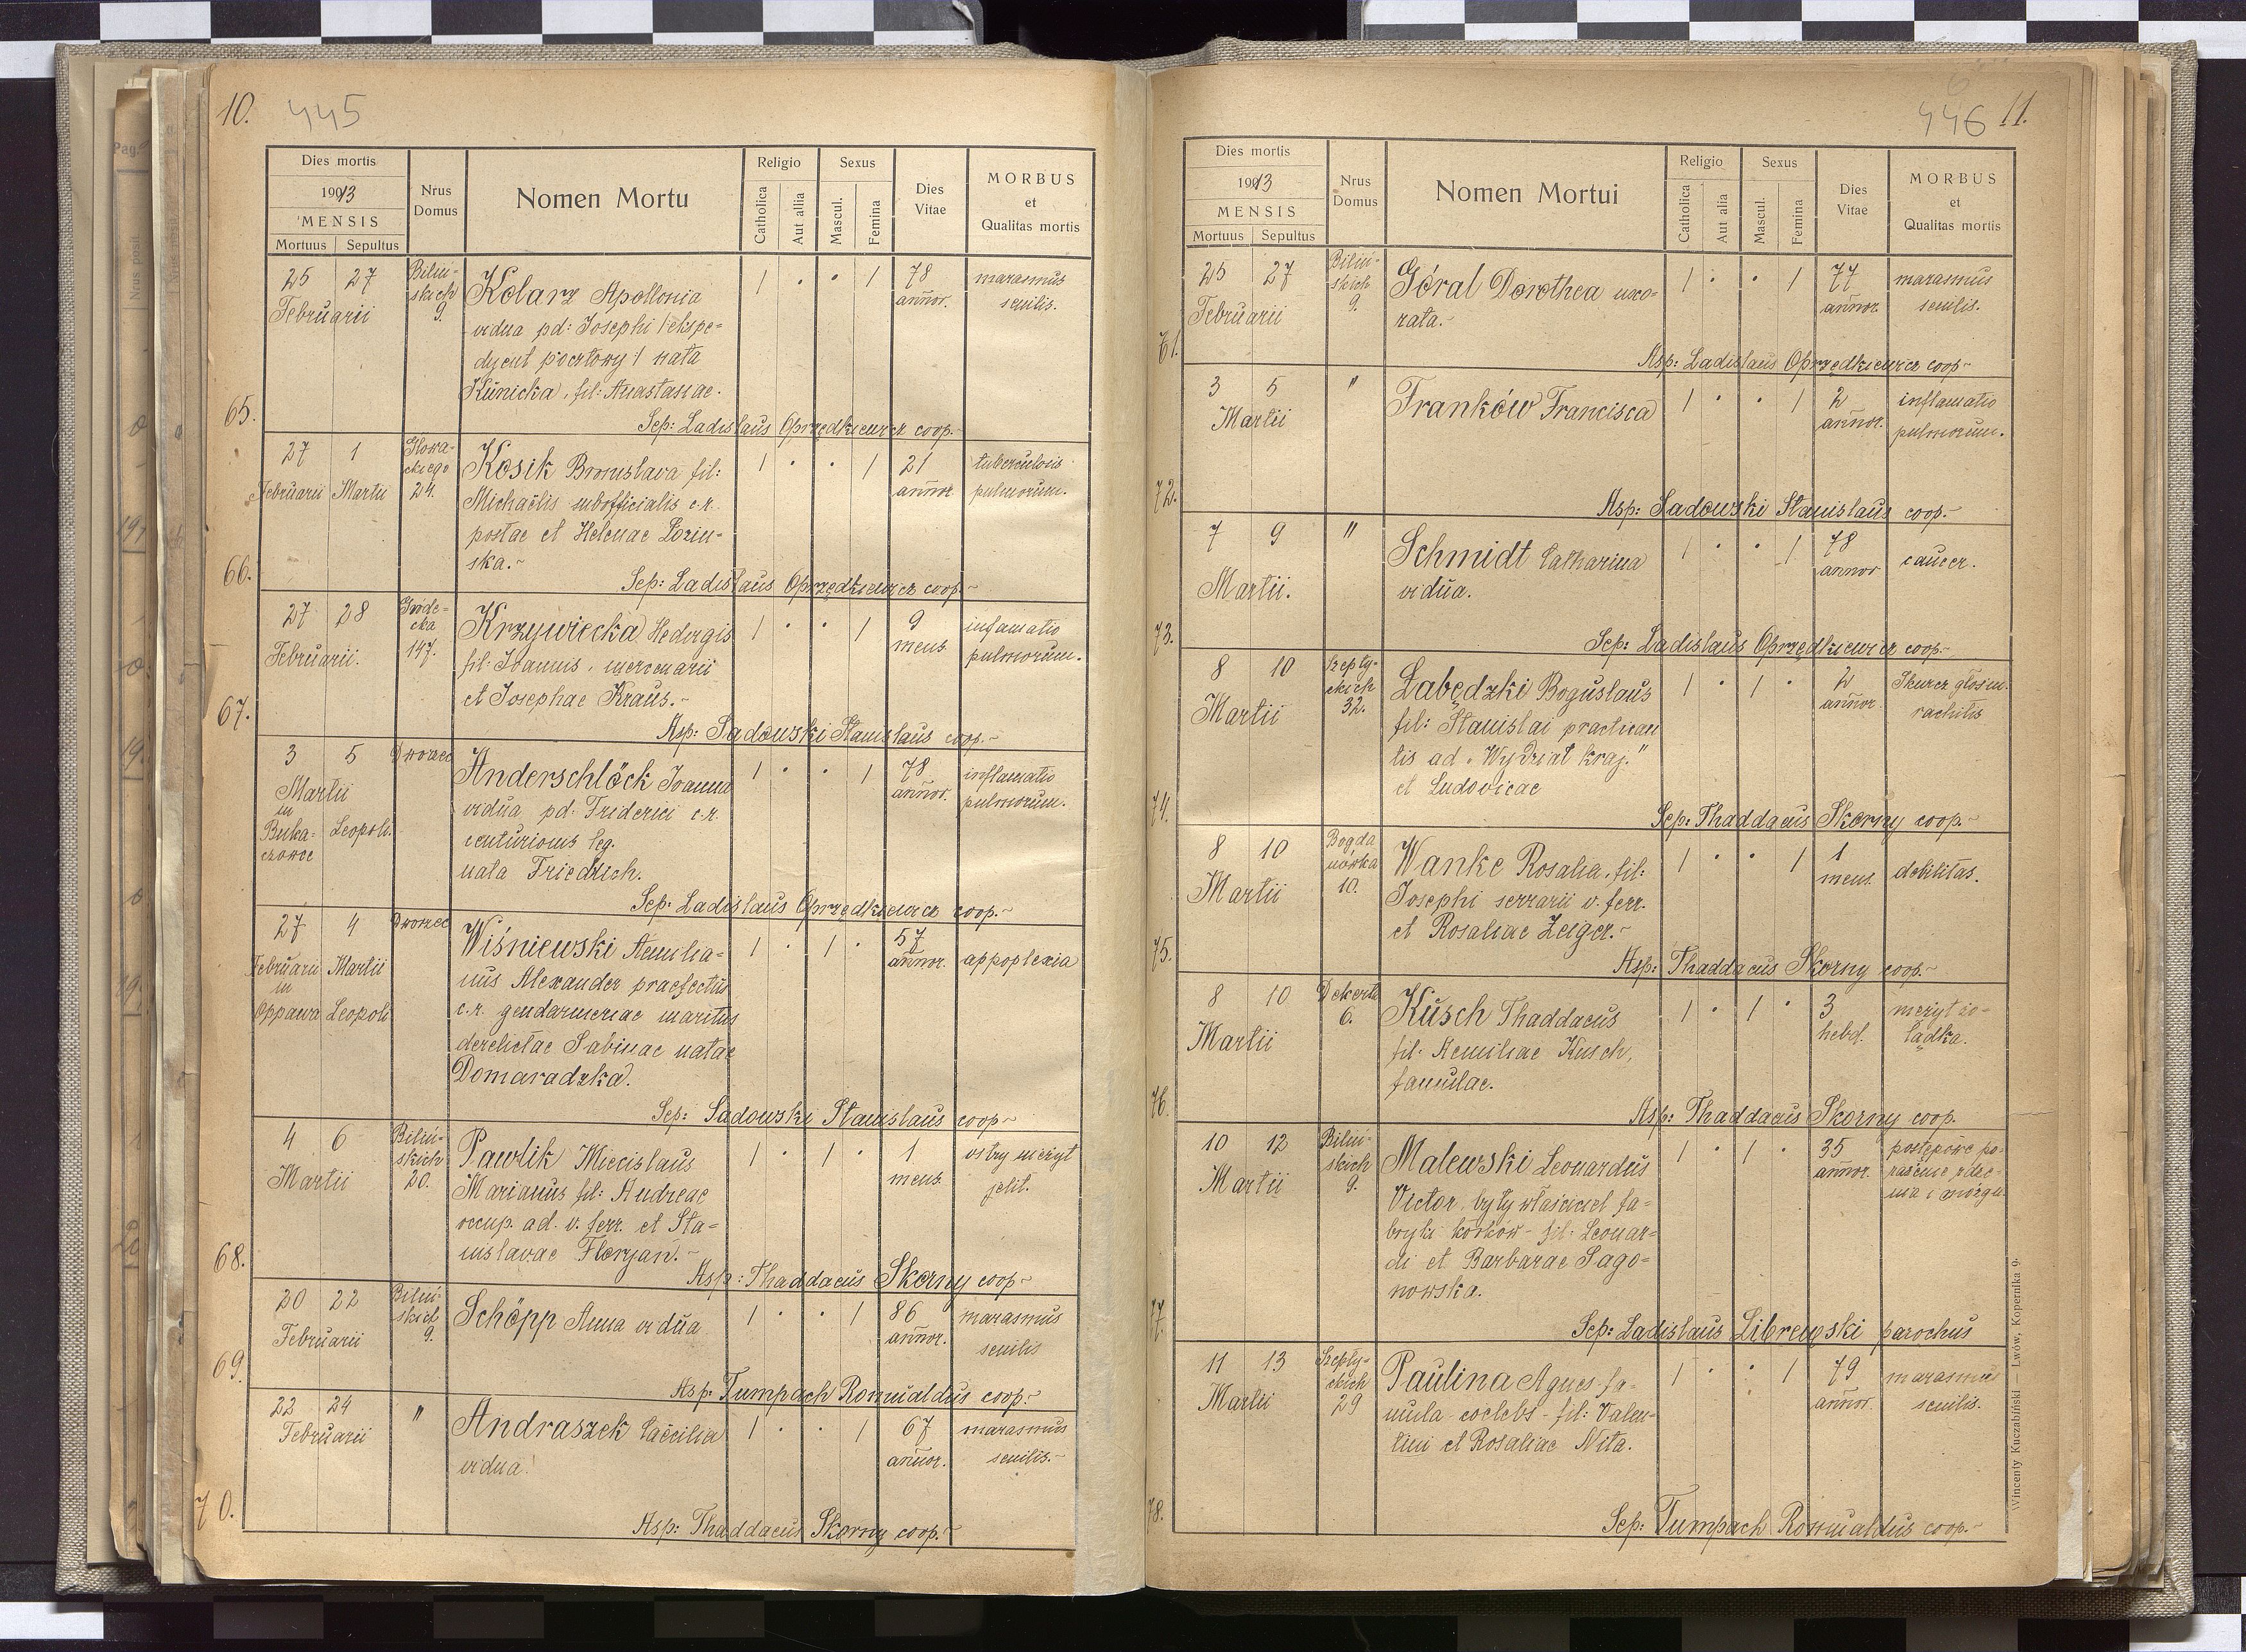 10.
445
Dies mortis
1913
MENSIS
Mortuus Sepultus
Nrus Domus
Nomen Mortu
Religio
Catholica
Aut allia
Sexus
Mascul.
Femina
Dies Vitae
MORBUS
et
Qualitas mortis
65.
25 27 Biliń- Kolarz Apollonia 1 · · 1 78 marasmus
Februarii skich 9. vidua pd: Josephi /ekspe- annor. senilis.
dyent pocztowy/ nata
Kunicka, fil: Anastasiae.
Sep: Ladislaus Oprzędkiewicz coop.-
66.
27 1 Głowa- Kosik Bronislava fil: 1 · · 1 21 tuberculosis
Februarii Martii ckiego 24. Michaëlis subofficialis c.r. annor. pulmorum.
postae et Helenae Lozin-
ska.-
Sep: Ladislaus Oprzędkiewicz coop.-
67.
27 28 Gróde- Krzywiecka Hedvigis 1 · · 1 9 inflamatio
Februarii. cka 147. fil: Ioannis, mercenarii mens. pulmorum.
et Josephae Kraus.-
Asp: Sadowski Stanislaus coop.-
3 5 Dworzec Anderschlöck Joanna 1 · · 1 78 inflamatio
Martii vidua pd: Friderici c.r. annor. pulmorum.
in centurionis leg.
Buka- Leopoli. nata Friedrich.
czowce
Sep: Ladislaus Oprzędkiewicz coop.-
27 4 Dworzec Wiśniewski Aemilia- 1 · 1 · 57 appoplexia
Februarii Martii nus Alexander praefectus annor.
in c.r. gendarmeriae maritus
Oppawa Leopoli derelictae Sabinae natae
Domaradzka.
Sep: Sadowski Stanislaus coop-
68.
4 6 Biliń- Pawlik Miecislaus 1 · 1 · 1 ostry nieżyt
Martii skich 20. Marianus fil: Andreae mens. jelit.
occup. ad. v. ferr. et Sta-
nislavae Floryan.-
Asp: Thaddaeus Skorny coop-
69.
20 22 Biliń- Schöpp Anna vidua 1 · · 1 86 marasmus
Februarii skich 9. annor. senilis
Asp: Tumpach Romualdus coop.-
70.
22 24 " Andraszek Caecilia 1 · · 1 67 marasmus
Februarii vidua. annor. senilis.-
Asp: Thaddaeus Skorny coop.-
446
11.
Dies mortis
1913
MENSIS
Mortuus Sepultus
Nrus Domus
Nomen Mortui
Religio
Catholica
Aut alia
Sexus
Mascul.
Femina
Dies Vitae
MORBUS
et
Qualitas mortis
71.
25 27 Biliń- Góral Dorothea uxo- 1 · · 1 77 marasmus
Februarii skich 9. rata.- annor. senilis.
Asp: Ladislaus Oprzędkiewicz coop-
72.
3 5 " Franków Francisca 1 · · 1 2 inflamatio
Martii annor. pulmorum.
Asp: Sadowski Stanislaus coop.-
73.
7 9 " Schmidt Catharina 1 · · 1 78 cancer.
Martii. vidua. annor
Sep: Ladislaus Oprzędkiewicz coop.-
74.
8 10 Szepty- Łabędzki Boguslaus 1 · 1 · 2 Skurcz głośni.
Martii ckich 32. fil: Stanislai practican annor. rachitis
tis ad "Wydział kraj."
et Ludovicae
Sep: Thaddaeus Skorny coop.-
75.
8 10 Bogda Wanke Rosalia, fil: 1 · · 1 1 debilitas.
Martii nówka 10. Josephi serrarii v. ferr. mens.
et Rosaliae Zeiger.-
Asp: Thaddaeus Skorny coop.-
76.
8 10 Dekerta Kusch Thaddaeus 1 · 1 · 3 nieżyt żo-
Martii 6. fil: Aemiliae Kusch, hebd. łądka.
famulae.
Asp: Thaddaeus Skorny coop.
77.
10 12 Biliń- Malewski Leonardus 1 · 1 · 35 postępowe po-
Martii skich 9. Victor, były właściciel fa- annor. rażenie rdze-
bryki korków - fil: Leonar- nia i mózgu.
di et Barbarae Sago-
nowska.
Sep: Ladislaus Librewski parochus
78.
11 13 Szepty- Paulina Agnes fa- 1 · · 1 79 marasmus
Martii ckich 29 mula coelebs - fil: Valen- annor. senilis.
tini et Rosaliae Nita.
Sep: Tumpach Romualdus coop.-
Wincenty Kuczabiński — Lwów, Kopernika 9.